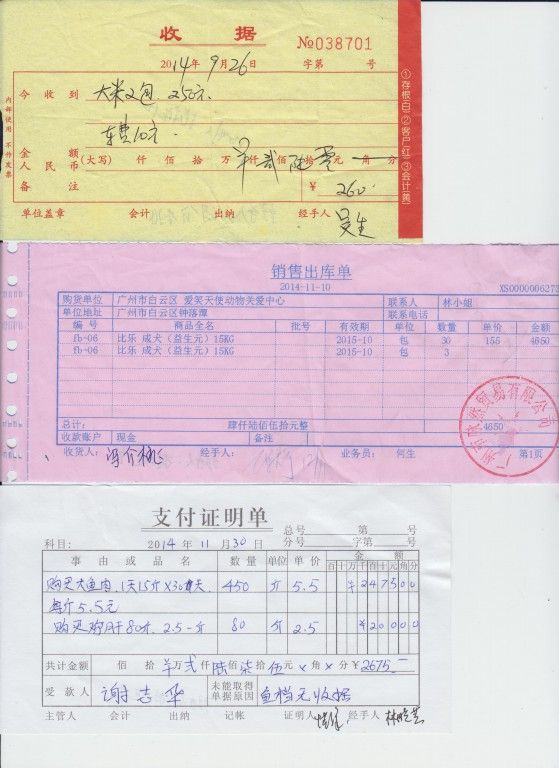 收 据
№038701
2014年9月26日 字第 号
今 收 到 大米2包 250元.
车费10元.
金 额
人 民 币 (大写) 仟 佰 拾 万 仟 佰 拾 元 角 分
羊 贰 陆 零
备 注 ¥ 260
单位盖章 会计 出纳 经手人
内部使用 不作发票
①存根(白)②客户(红)③会计(黄)
销售出库单
2014-11-10 XS0000006273
购货单位 广州市白云区 爱笑天使动物关爱中心 联系人 林小姐
单位地址 广州市白云区钟落潭 联系电话
编 号 商品全名 批号 有效期 单位 数量 单价 金额
fb-06 比乐 成犬(益生元)15KG 2015-10 包 30 155 4650
fb-06 比乐 成犬(益生元)15KG 2015-10 包 3
总计: 肆仟陆佰伍拾元整 4650
收款账户 现金 备注
收货人: 经手人: 业务员: 何生 第1页
支付证明单
总号 第 号
科目: 2014年 11月 30日 分号 字第 号
事 由 或 品 名 数 量 单位 单 价 金 额
百十万千百十元角分
购买大鱼肉, 1天15斤×30天 450 斤 5.5 ¥247500
每斤5.5元
购买鸡肝80斤, 2.5一斤 80 斤 2.5 ¥20000
共计金额 佰 拾 羊 贰 仟 陆 佰 柒 拾 伍 元 × 角 × 分 ¥ 2675.—
受 款 人 谢志华 未能取得单据原因 鱼档无收据
主管人 会计 出纳 记帐 证明人 经手人 林晓芸